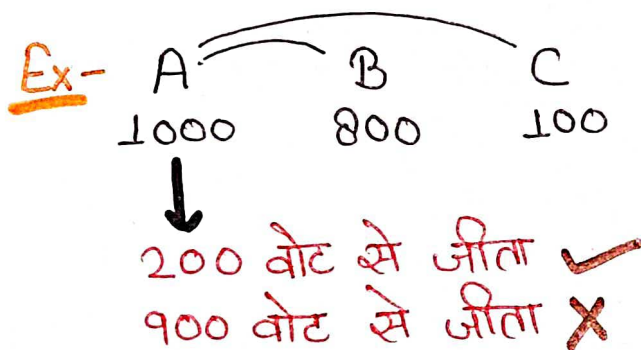 Ex- A B C
1000 800 100
200 वोट से जीता ✓
900 वोट से जीता ✗